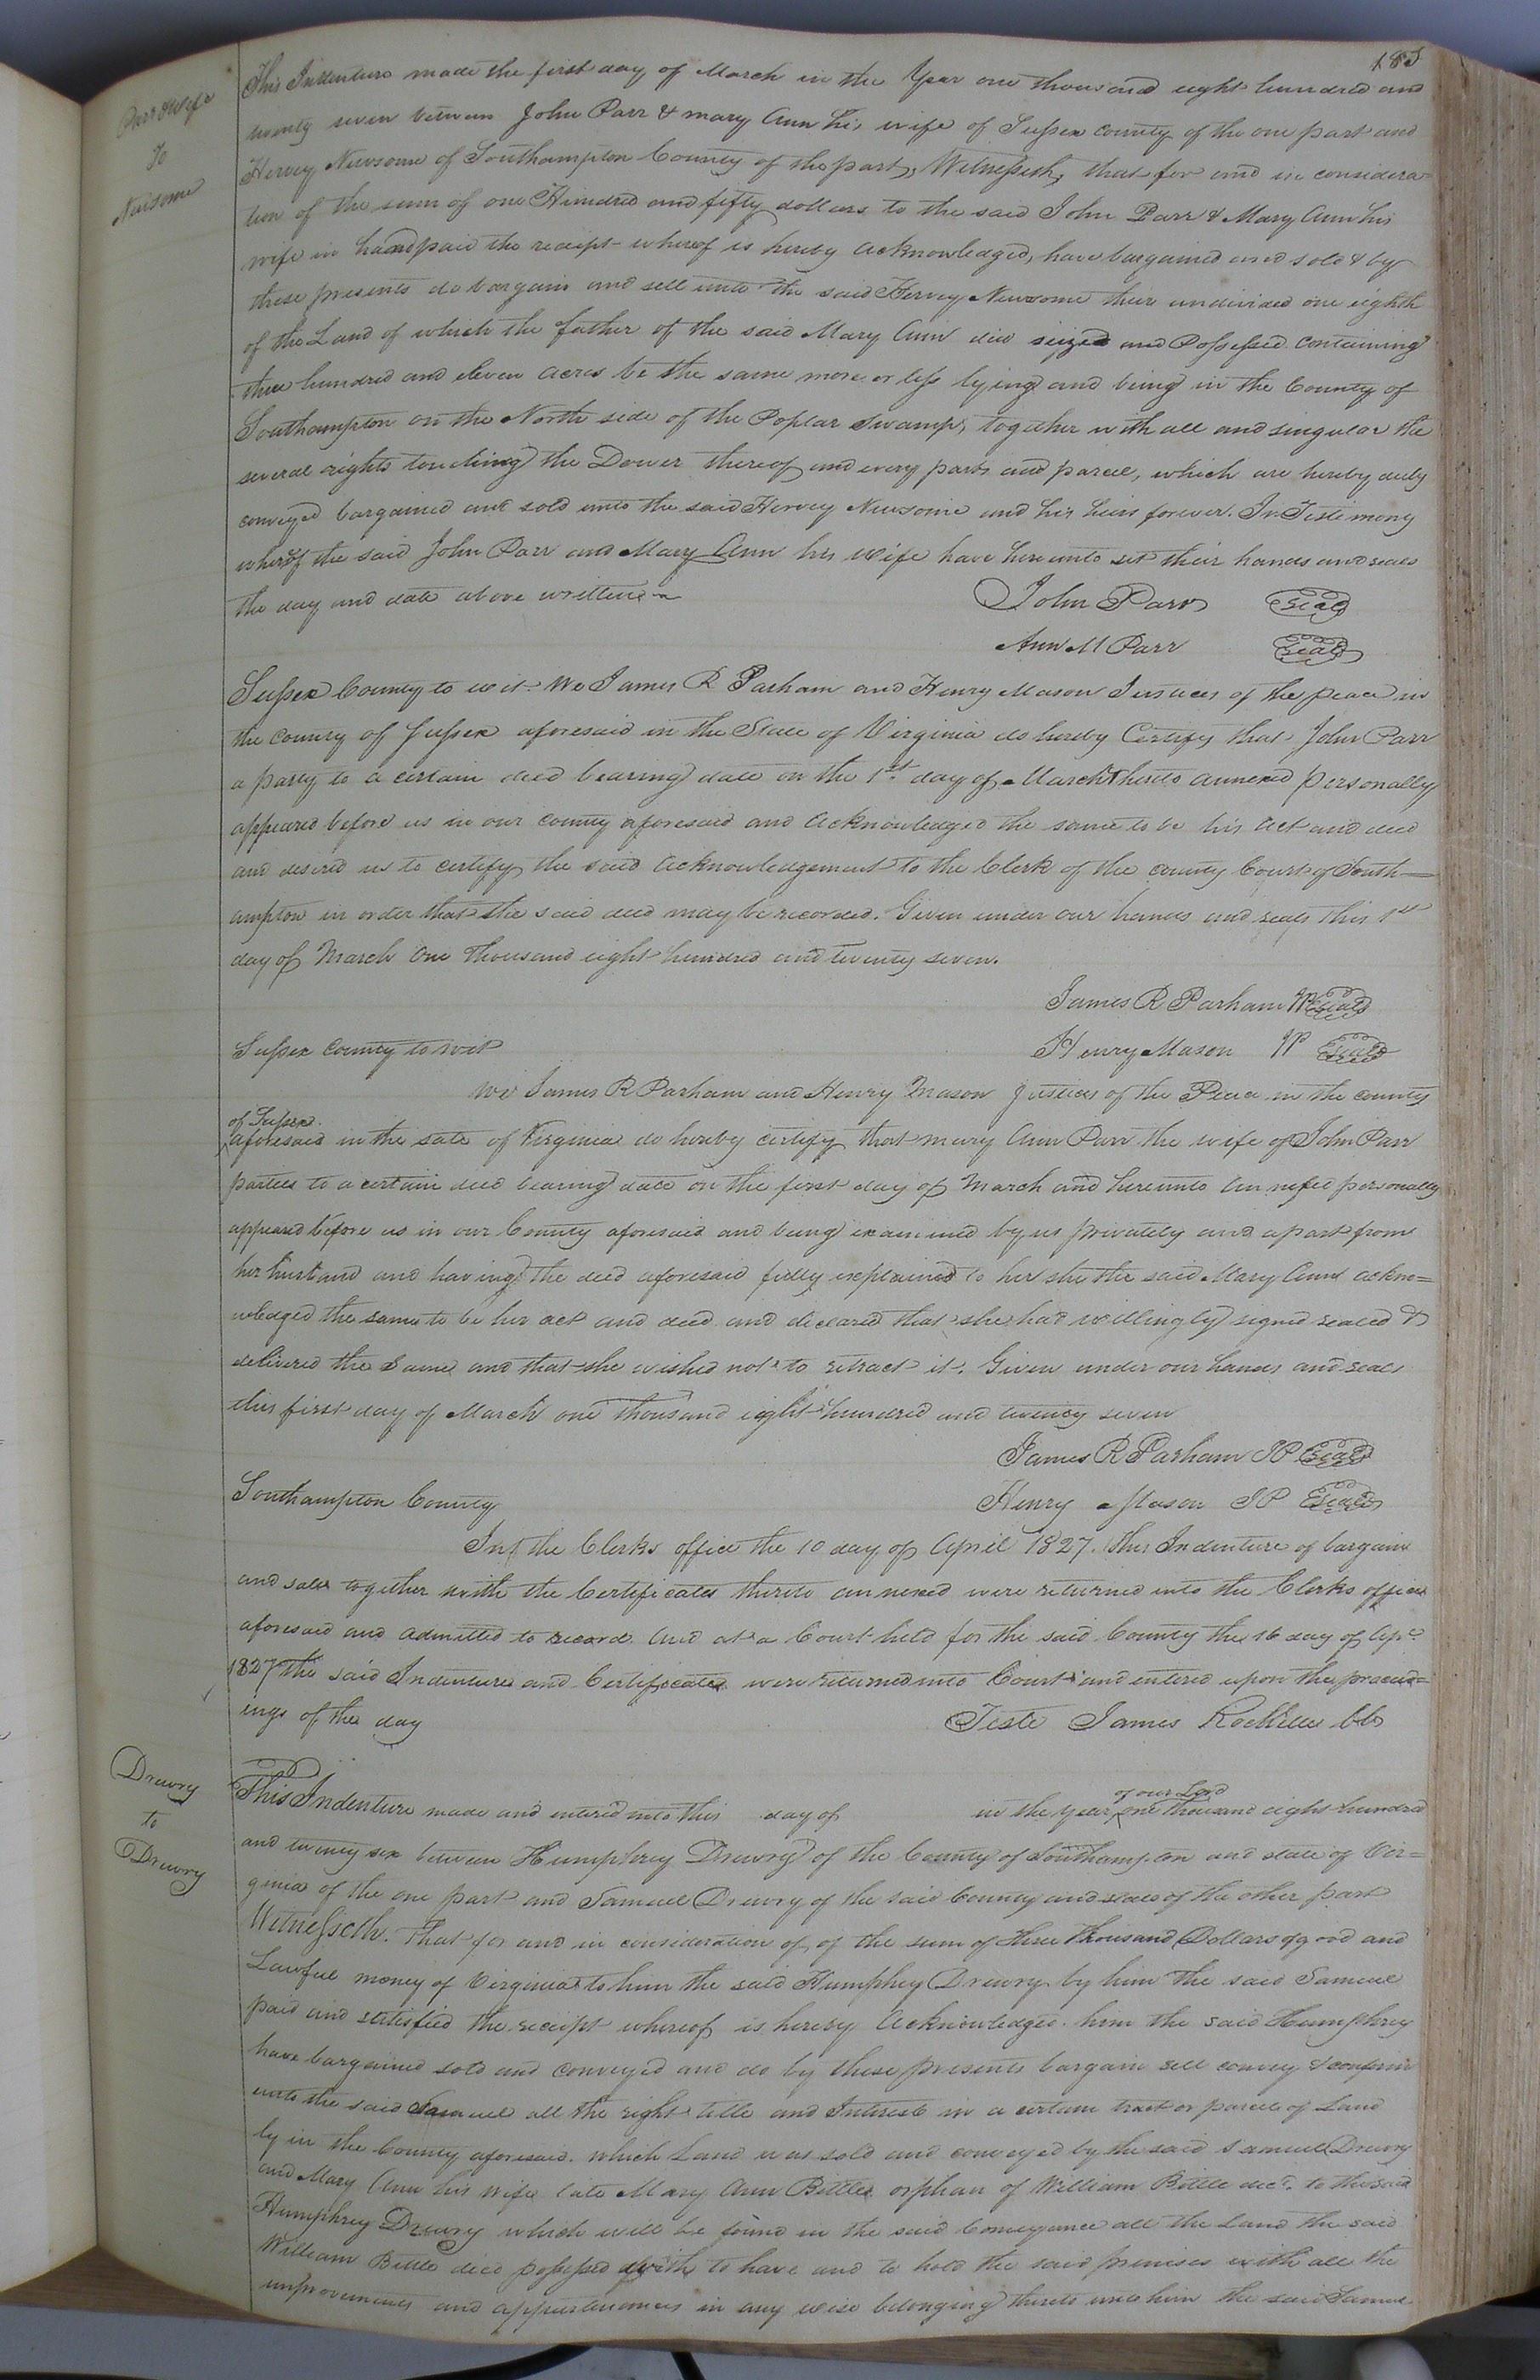 185
Parr & Wife
To
Newsome
This Indenture made the first day of March in the Year one thousand eight hundred and
twenty seven between John Parr & mary Ann his wife of Sussex county of the one part and
Hervey Newsome of Southampton County of the part, Witnesseth, that for and in considera=
tion of the sum of one Hundred and fifty dollars to the said John Parr & Mary Ann his
wife in hand paid the receipt whereof is hereby acknowledged, have bargained and sold & by
these presents do bargain and sell unto the said Hervey Newsome their undivided one eighth
of the Land of which the father of the said Mary Ann died seized and Possessed containing
three hundred and eleven acres be the same more or less lying and being in the County of
Southampton on the North side of the Poplar Swamp, together with all and singular the
several rights touching the Dower thereof and every part and parcel, which are hereby duly
conveyed bargained and sold unto the said Hervey Newsome and his heirs forever. In Testimony
whereof the said John Parr and Mary Ann his wife have hereunto set their hands and seals
the day and date above written
John Parr seal
Ann M Parr seal
Sussex County to wit We James R Parham and Henry Mason Justices of the peace in
the county of Sussex aforesaid in the State of Virginia do hereby Certify that John Parr
a party to a certain deed bearing date on the 1st day of March & hereto annexed personally
appeared before us in our county aforesaid and acknowledged the same to be his act and deed
and desired us to certify the said acknowledgement to the Clerk of the county Court of South—
ampton in order that the said deed may be recorded. Given under our hands and seals this 1st
day of March One thousand eight hundred and twenty seven.
James R Parham JP seal
Sussex County to wit
Henry Mason JP seal
We James R Parham and Henry Mason Justices of the Peace in the county
of Sussex
aforesaid in the sate of Virginia do hereby certify that mary Ann Parr the wife of John Parr
parties to a certain deed bearing date on the first day of March and hereunto annexed personally
appeared before us in our County aforesaid and being examined by us privately and apart from
her husband and having the deed aforesaid fully explained to her she the said Mary Ann ackno=
wledged the same to be her act and deed and declared that she had willingly signed sealed &
delivered the same and that she wished not to retract it. Given under our hands and seals
this first day of March one thousand eight hundred and twenty seven
James R Parham JP seal
Southampton County
Henry Mason JP seal
In the Clerks office the 10 day of April 1827. This Indenture of bargain
and sale together with the Certificates thereto annexed were returned into the Clerks office
aforesaid and admitted to record And at a Court held for the said County the 16 day of Apl
1827 the said Indenture and Certificates were returned into Court and entered upon the proceed=
ings of the day
Teste James Rochelle Clk
Drewry
to
Drewry
This Indenture made and entered into this day of in the year of our Lord one thousand eight hundred
and twenty six between Humphrey Drewry of the County of Southampton and state of Vir=
ginia of the one part and Samuel Drewry of the said County and state of the other part
Witnesseth. That for and in consideration of of the sum of three thousand Dollars of good and
Lawful money of Virginia to him the said Humphrey Drewry by him the said Samuel
paid and satisfied the receipt whereof is hereby acknowledged. him the said Humphrey
have bargained sold and conveyed and do by these presents bargain sell convey & confirm
unto the said Samuel all the right title and Interest in a certain tract or parcel of Land
ly in the County aforesaid. which Land was sold and conveyed by the said Samuel Drewry
and Mary Ann his wife late Mary Ann Bittle orphan of William Bittle decd. to the said
Humphrey Drewry which will be found in the said Conveyance all the Land the said
William Bittle decd possessed with to have and to hold the said premises with all the
improvements and appurtenances in any wise belonging thereto unto him the said Samuel